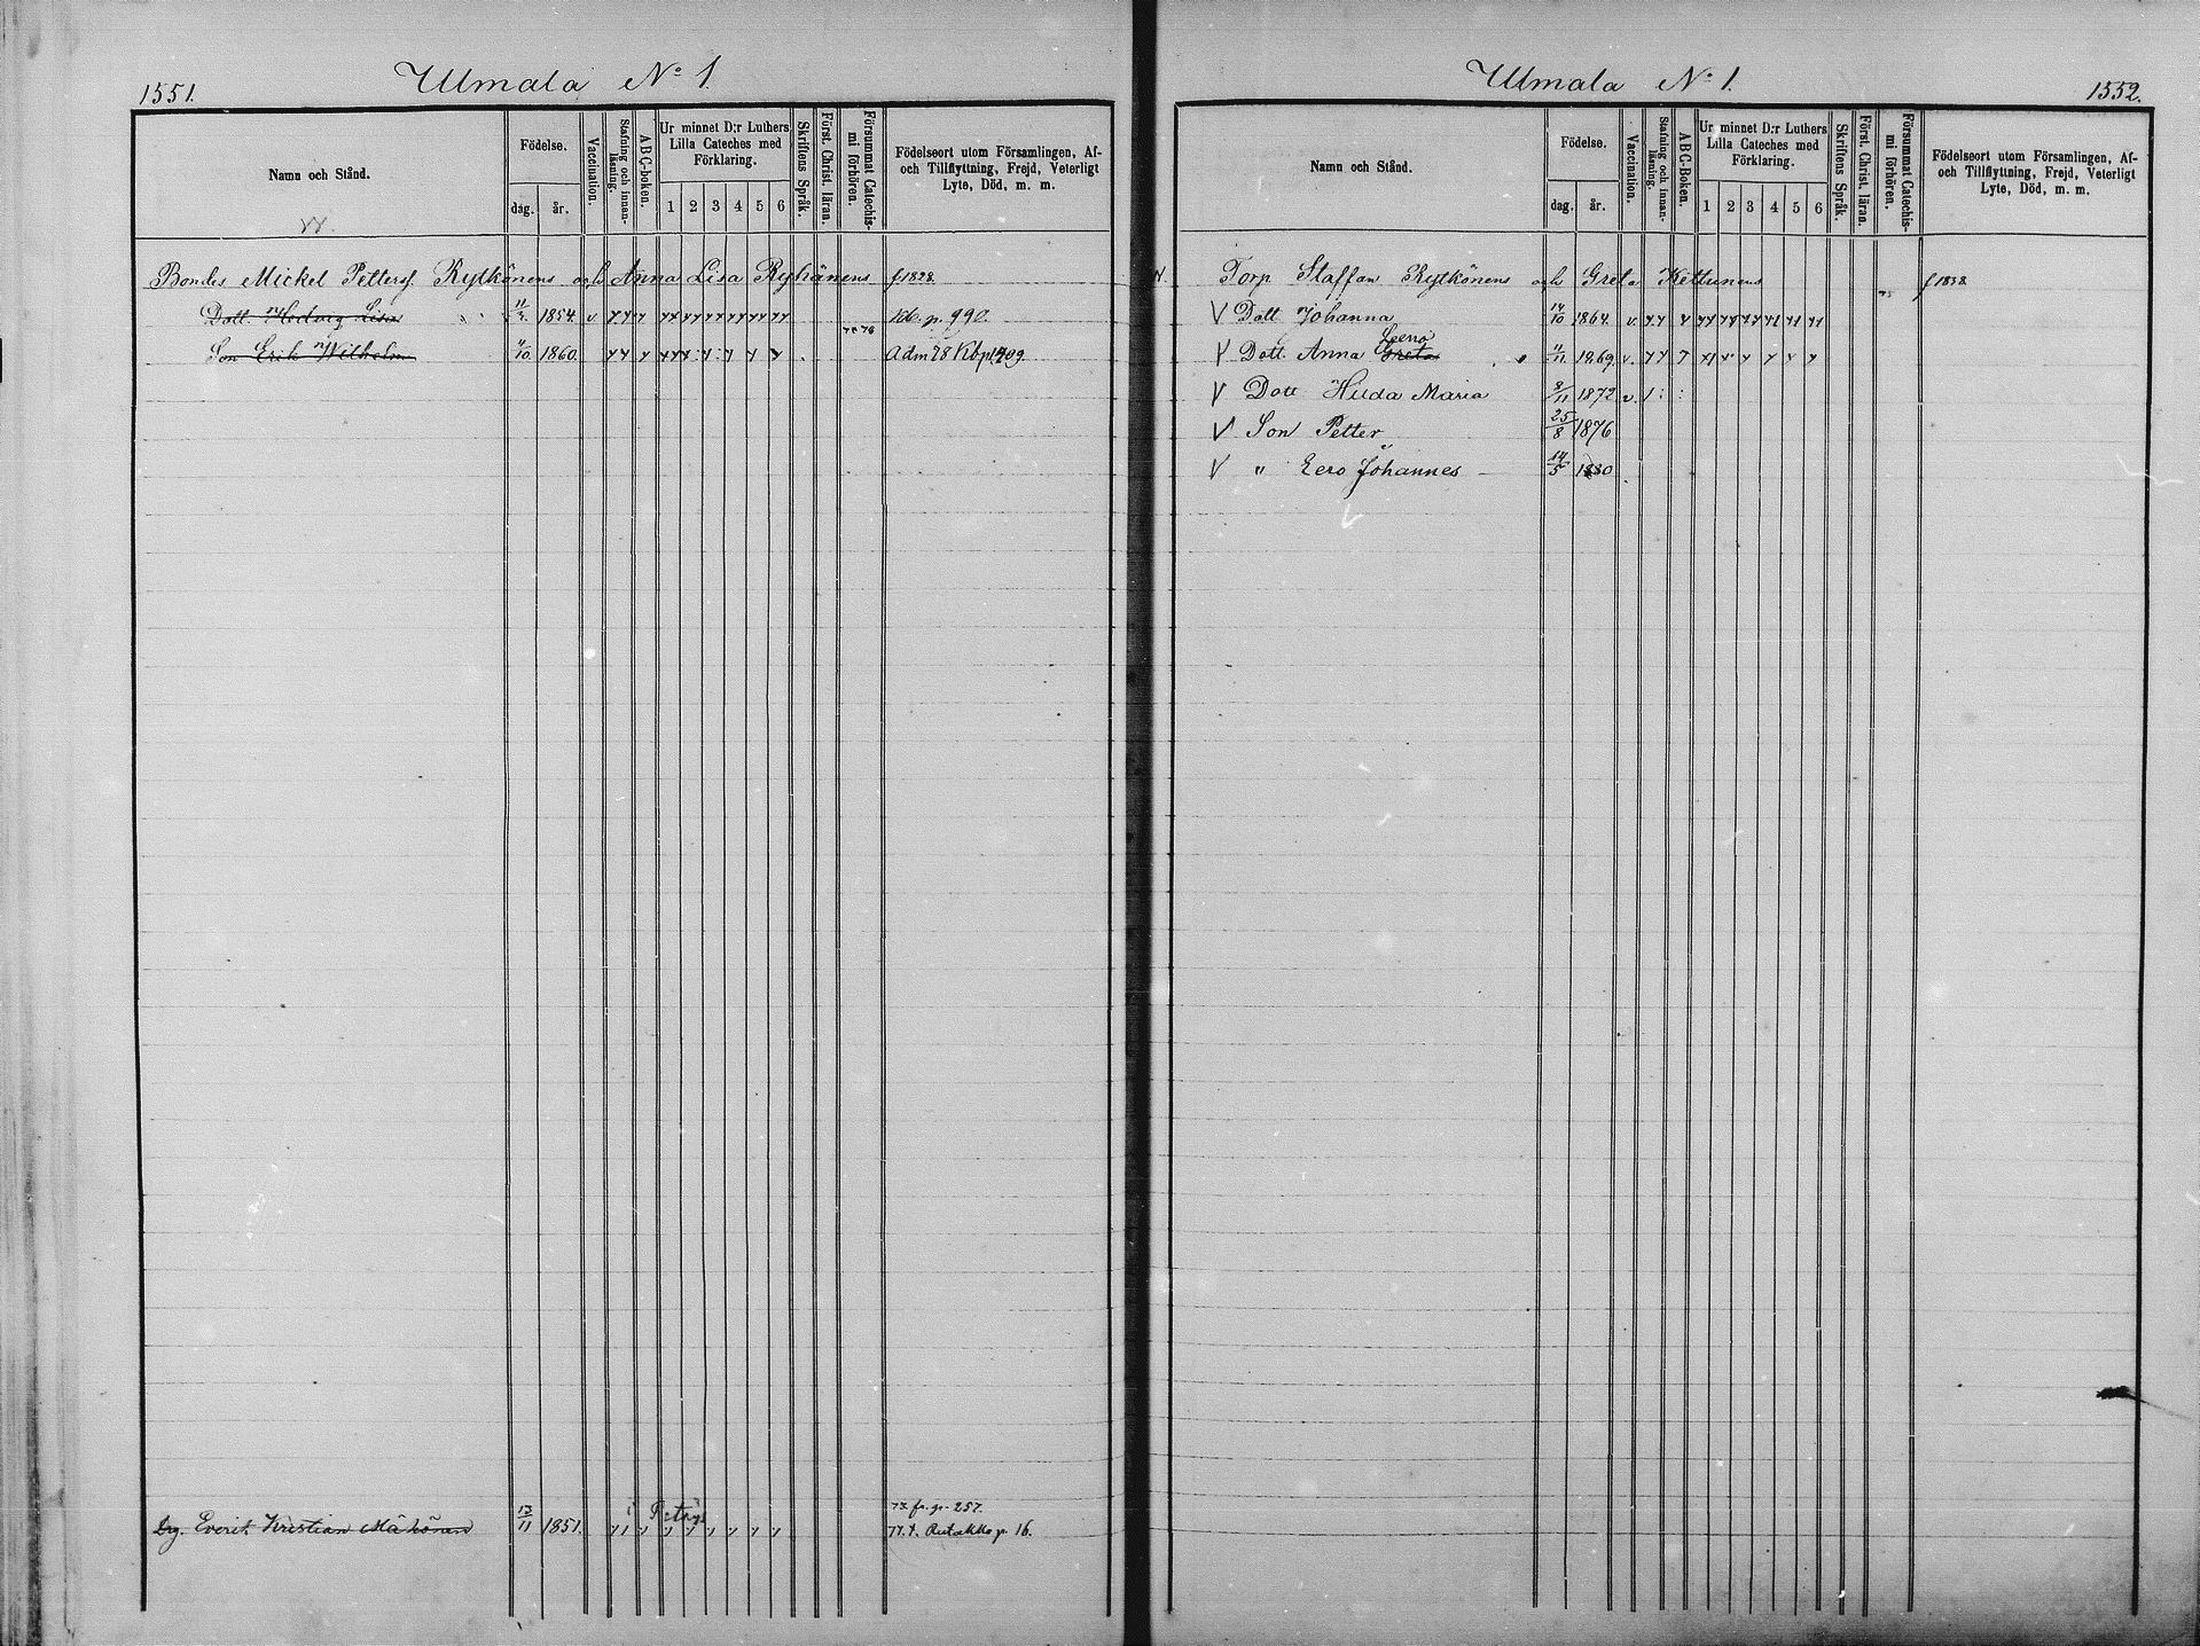 1551.
Ulmala No 1.
Namn och Stånd.
Födelse.
dag.
år.
Vaccination.
Stafning och innan-läsning.
ABC-boken.
Ur minnet D:r Luthers Lilla Cateches med Förklaring.
1 2 3 4 5 6
Skriftens Språk.
Först. Christ. läran.
Försummat Catechis-mi förhören.
Födelseort utom Församlingen, Af- och Tillflyttning, Frejd, Veterligt Lyte, Död, m. m.
Bondes Mickel Petterss. Rytkönens och Anna Lisa Ryhänens f 1828.
Dott. Hedvig Lisa 1854. v 75 76 Kb. p. 990.
Son Erik Wilhelm 11/10. 1860. Adm 78 Kbp 1409.
i Petäys 73 fr. p. 257.
Drg. Evert Kristian Mähönen 13/11 1851. 77. t. Rutakko p. 16.
Ulmala No 1.
1552.
Namn och Stånd.
Födelse.
dag.
år.
Vaccination.
Stafning och innan-läsning.
ABC-Boken.
Ur minnet D:r Luthers Lilla Cateches med Förklaring.
1 2 3 4 5 6
Skriftens Språk.
Först. Christ. läran.
Försummat Catechis-mi förhören.
Födelseort utom Församlingen, Af- och Tillflyttning, Frejd, Veterligt Lyte, Död, m. m.
Torp Staffan Rytkönens och Greta Kettunens 75 f 1838
V Dott Johanna 14/10 1864. v.
Leena
V Dott. Anna Greta 11/11. 1869. v.
V Dott Hilda Maria 8/11 1872 v.
V Son Petter 25/8 1876
V " Eero Johannes 14/5 1880